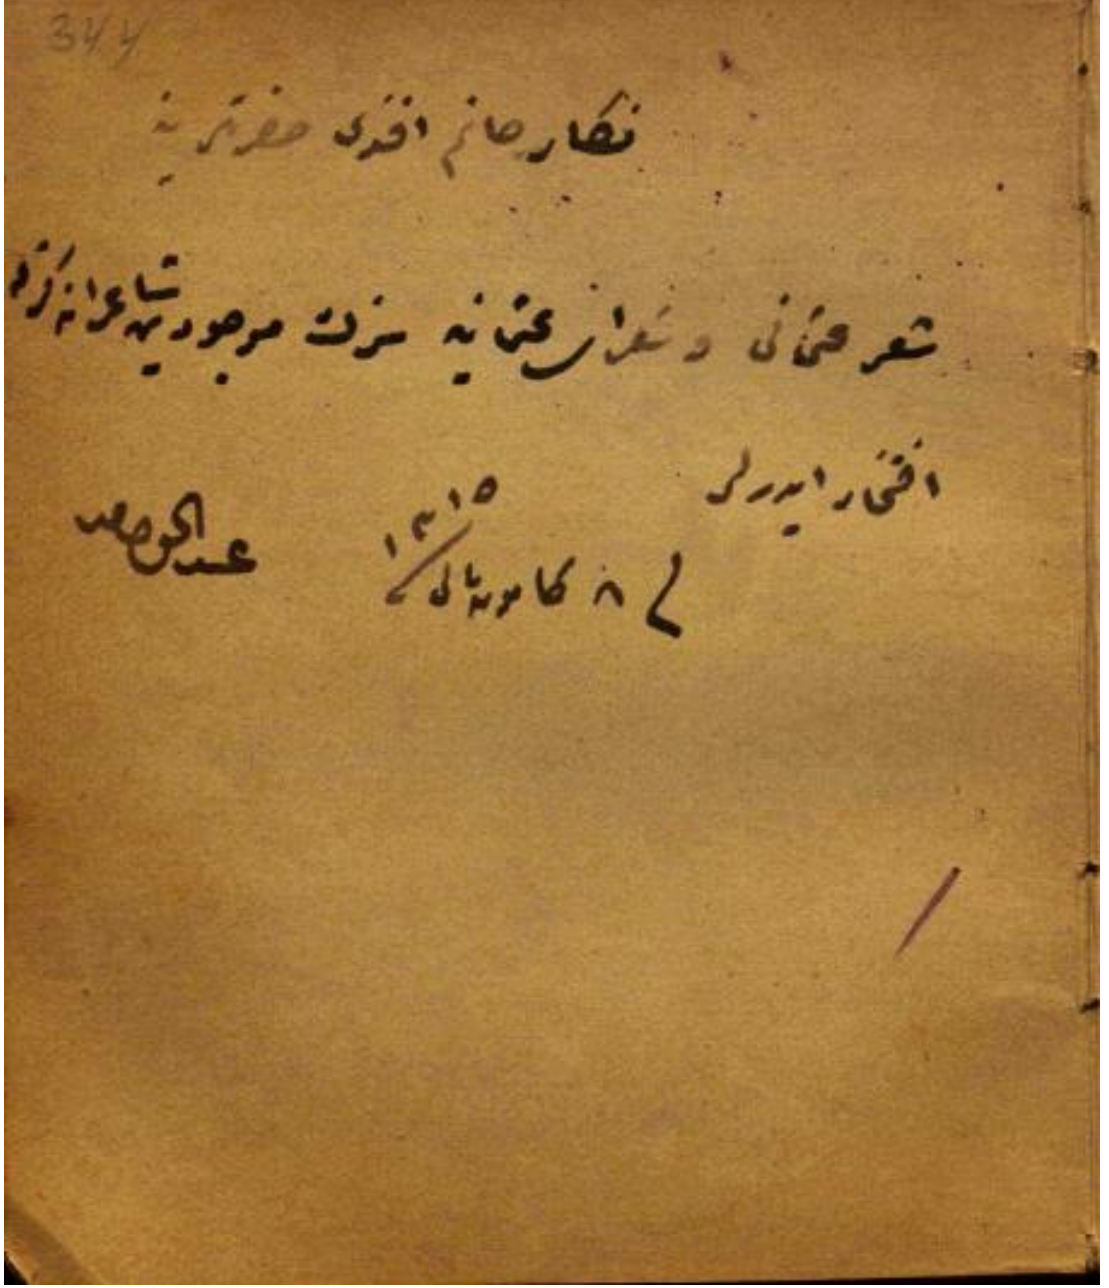 344
نكار خانم افندی حضرتلرینه
شعر عثمانی و شعرای عثمانیه سزك موجودیت شاعرانه كزله
افتخار ایدرلر
فی ٨ كانون ثانی ١٣١٥
عبدالحق حامد